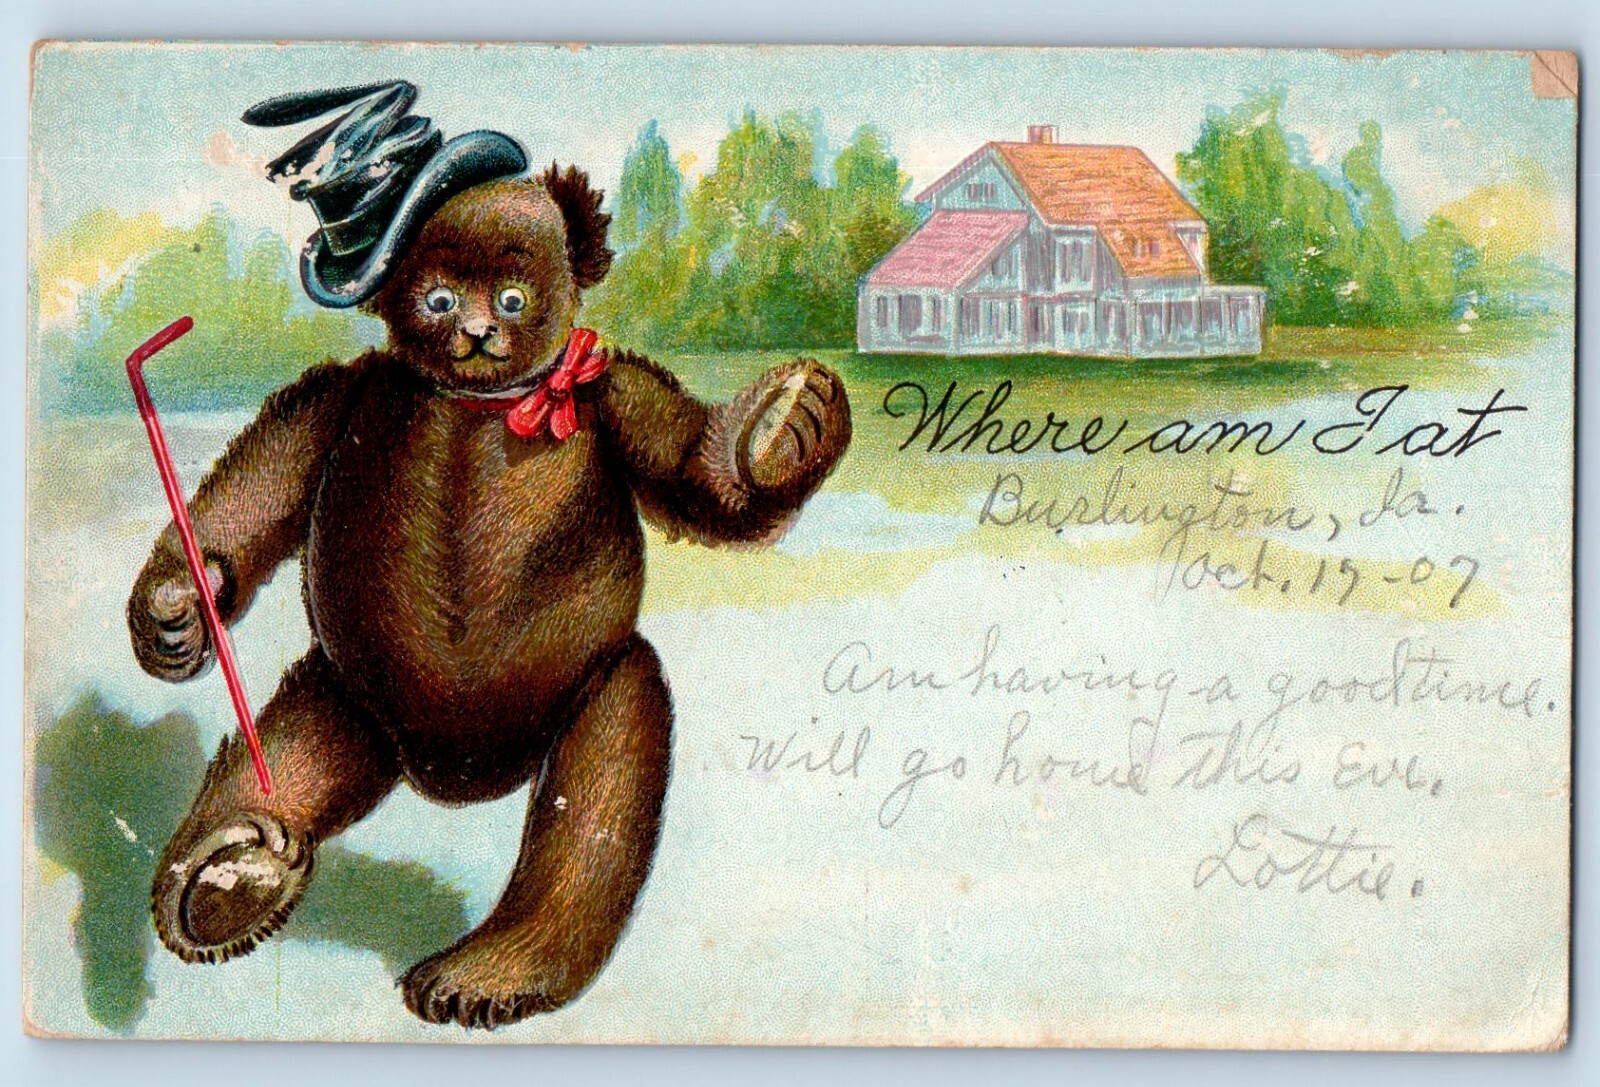 Where am I at
Burlington, Ia.
Oct. 19-07
Am having a good time.
Will go home this Eve.
Lottie.